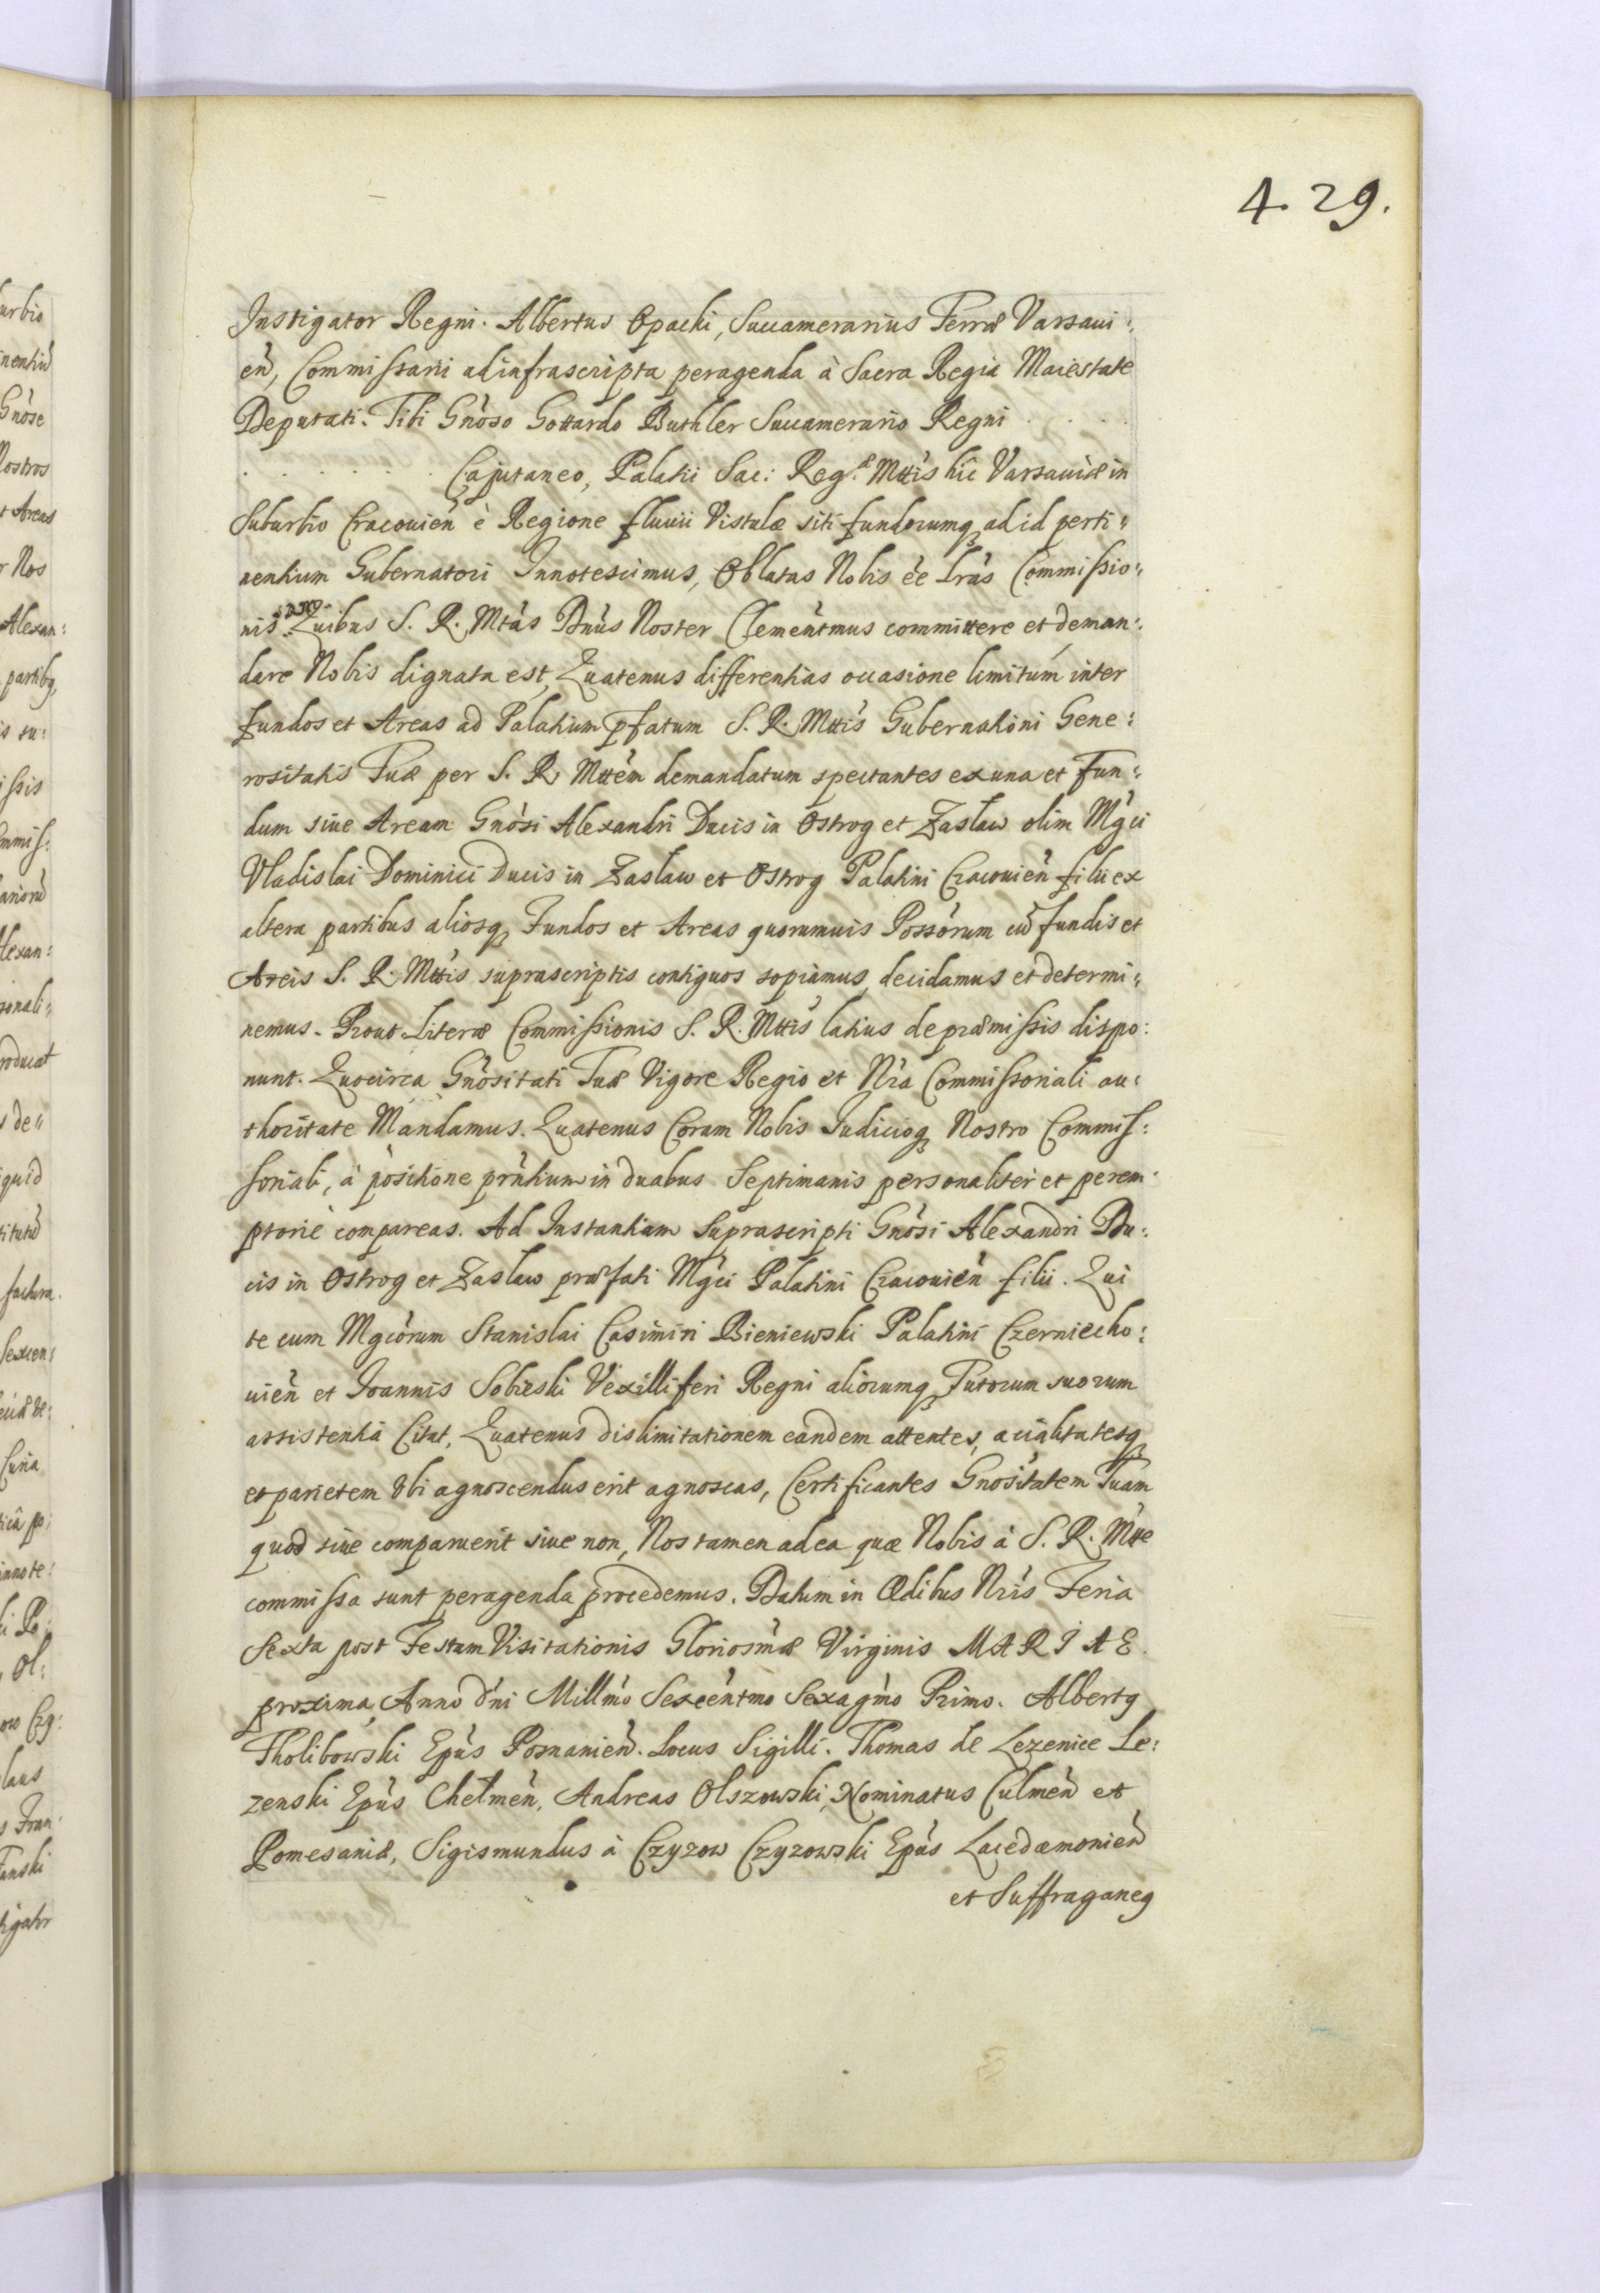 4. 29.
Instigator Regni. Albertus Opacki, Succamerarius Terræ Varsaui:
eñ, Commissarii ad infrascripta peragenda à Sacra Regia Maiestate
Deputati. Tibi Gnoso Gottardo Buthler Succamerario Regni . . . .
. . . . . . Capitaneo, Palatii Sac: Regæ Mttis hic Varsauiæ in
Suburbio Cracouień è Regione fluuii Vistulæ siti fundorumq ad id perti:
nentium Gubernatori Innotescimus, Oblatas Nobis ee Lrás Commissio:
nis Quibus S. R. Mtás Dnús Noster Clementmus committere et deman:
dare Nobis dignata est, Quatenus differentias occasione limitum inter
fundos et Areas ad Palatium pfatum S. R. Mttis Gubernationi Gene:
rositatis Tuæ per S. R. Mttem demandatum spectantes ex una et Fun:
dum siue Aream Gnosi Alexandri Ducis in Ostrog et Zaslaw olim Mgci
Vladislai Dominici Ducis in Zaslaw et Ostrog Palatini Cracouień filii ex
altera partibus aliosq Fundos et Areas quorumuis Possorum cũ fundis et
Areis S. R. Mttis suprascriptis contiguos sopiamus, decidamus et determi:
nemus. Prout Literæ Commissionis S. R. Mttis latius de præmissis dispo:
nunt. Quocirca Gnositati Tuæ Vigore Regio et Nra Commissoriali au:
thoritate Mandamus. Quatenus Coram Nobis Judicioq Nostro Commis:
soriali, à positione prntium in duabus Septimanis personaliter et perem:
ptorie compareas. Ad Instantiam Suprascripti Gnosi Alexandri Du:
cis in Ostrog et Zaslaw præfati Mgci Palatini Cracouień filii. Qui
te cum Mgcorum Stanislai Casimiri Bieniewski Palatini Czerniecho:
uień et Joannis Sobieski Vexilliferi Regni aliorumq Tutorum suorum
assistentiâ Citat, Quatenus dislimitationem eandem attentes, acialitatesq
et parietem Vbi agnoscendus erit agnoscas, Certificantes Gnositatem Tuam
quod siue comparuerit siue non, Nos tamen ad ea quæ Nobis à S. R. Mtte
commissa sunt peragenda procedemus. Datum in Ædibus Nris Feria
Sexta post Festum Visitationis Gloriosmæ Virginis MARIAE
proxima, Anno dni Millmo Sexcentmo Sexagmo Primo. Albertg
Tholibowski Epus Posnanień. Locus Sigilli. Thomas de Lezenice Le:
zenski Epus Chelmeń, Andreas Olszowski, Nominatus Culmeń et
Pomesaniæ, Sigismundus à Czyzow Czyzowski Epus Lacedæmonień
et Suffraganeg